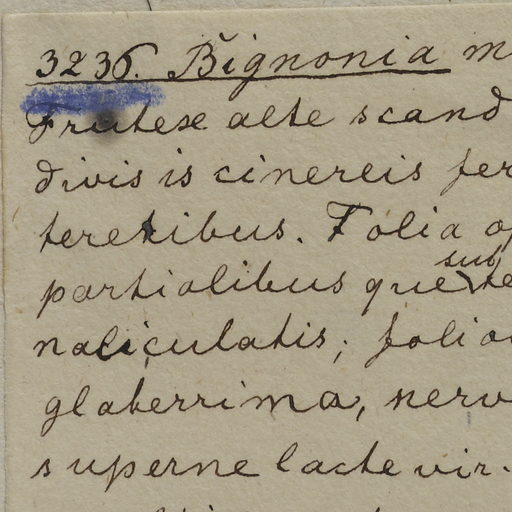 3236. Bignonia m
Frutex alte scand
divisis cinereis fer
teretibus. Folia op
partialibus que sub te
naliculatis; folio
glaberrima, nerv
superne laete vir.